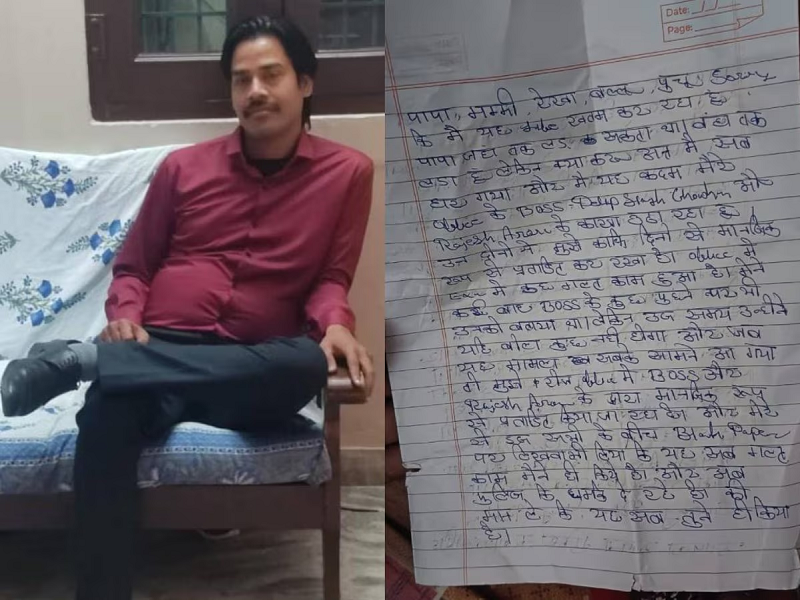 Date:
Page:
पापा, मम्मी, रेखा, बल्लू, Sorry
कि मै यह सब खत्म कर रहा हूँ
पापा जहा तक लड सकता था वहा तक
लडा हूँ लेकिन क्या करू अन्त मै अब
हार गया और मे यह कदम मेरे
office के Boss Dilip Singh Chauhan और
Rajesh Arora के कारण उठा रहा हू
इन दोनो ने मुझे काफि दिनो से मानसिक
रूप से प्रताडित कर रखा है। office मे
कुछ गलत काम हुआ है। मेने
कई बार Boss के कुछ पुछने पर भी
उनको बताया था। लेकिन उस समय उन्होने
यदि बोला कुछ नही होगा और जब
यह मामला सबके सामने आ गया
तो मुझे रोज office मे Boss और
Rajesh Arora के द्वारा मानसिक रूप
से प्रताडित किया जा रहा है। और मेरे
से इन सभी के बीच Blank Paper
पर लिखवाभी लिया कि यह सब गलत
काम मैने ही किये है। और अब
पुलिस कि धमकि दे रहे है। की
मान ले के यह सब तुने ही किया
है।